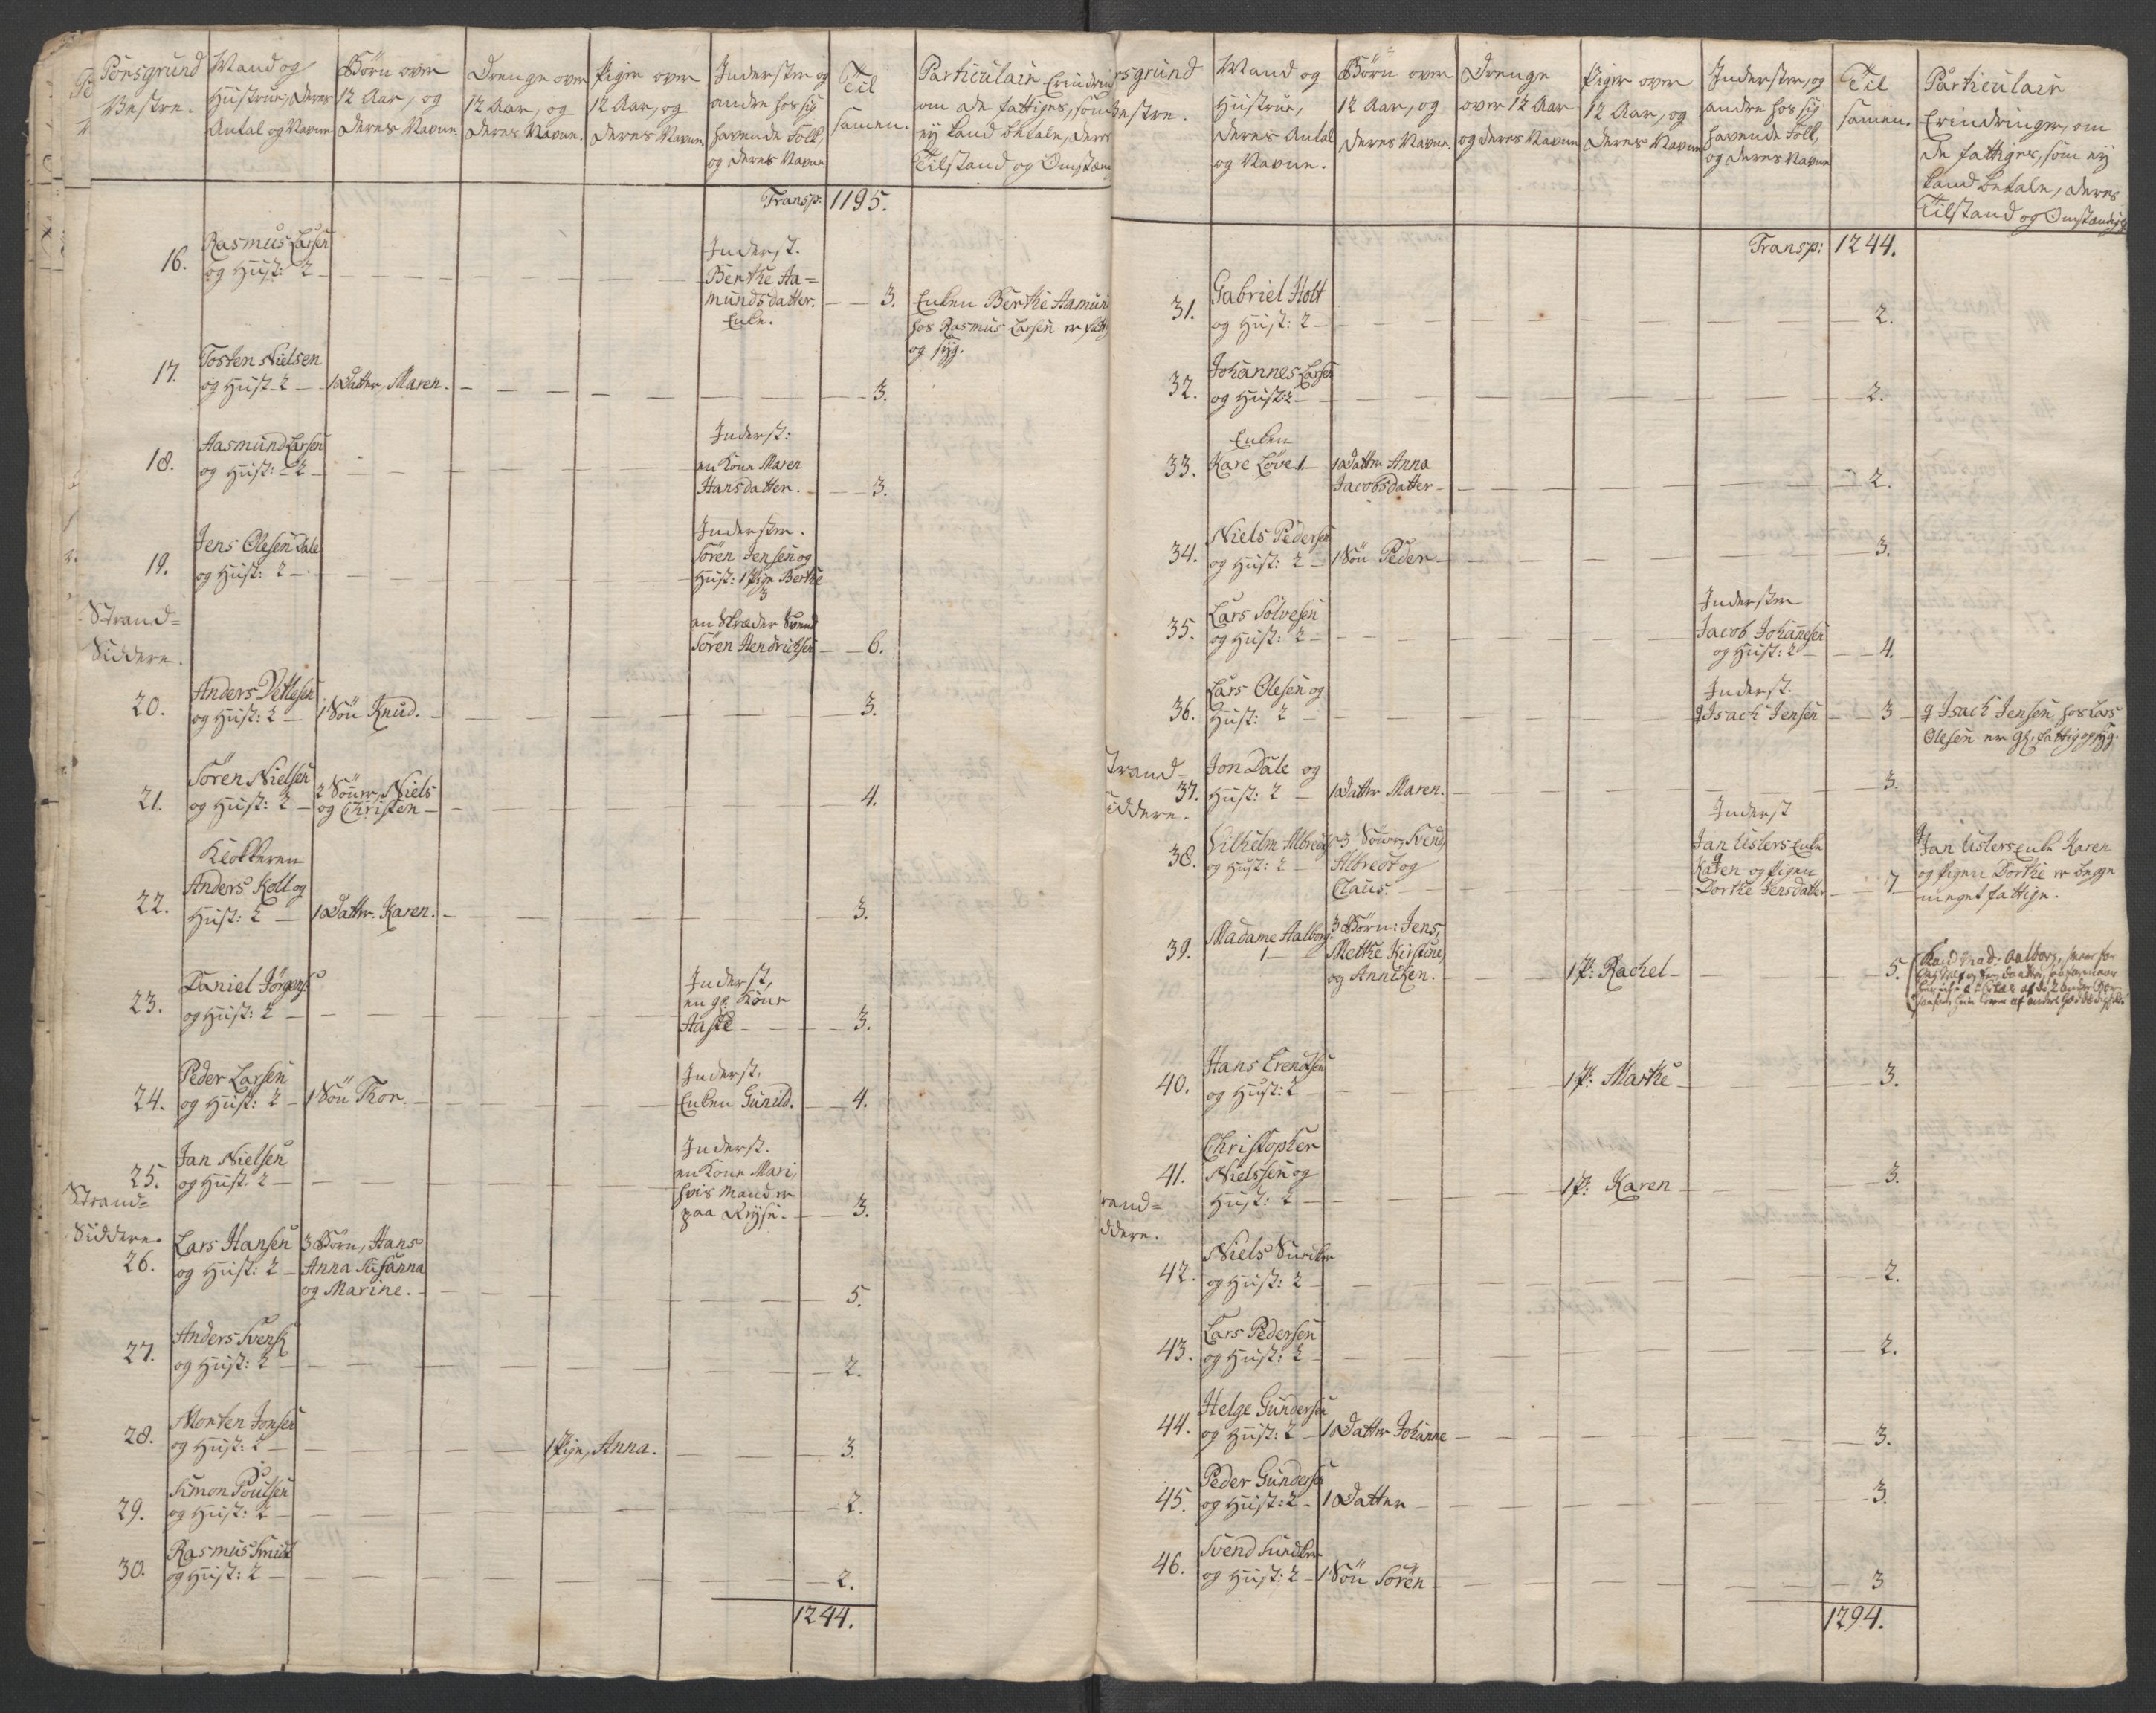 Porsgrund
Vestre.
Mand og
Hustrue, deres
Antal og Navne
Börn over
12 Aar, og
deres Navne.
Drenge over
12 Aar, og
deres Navne.
Piger over
12 Aar, og
deres Navne.
Inderster og
andre hos sig
havende Folk,
og deres Navne
Til
samen.
Particulair Erindring
om de fattiges, som
ey kand betale, deres
Tilstand og Omstæn
Transp: 1195.
16.
Rasmus Larsen
og Hust: 2
Inderst.
Berthe Aa=
mundsdatter.
Enke.
3.
Enken Berthe Aamun
hos Rasmus Larsen er fatti
og syg.
17.
Tosten Nielsen
og Hust. 2
1 Datter, Maren.
3.
18.
Aasmund Larsen
og Hust: 2
Inderst:
en Kone Maren
Hansdatter.
3.
19.
Jens Olesen Dale
og Hust: 2
Inderster.
Sören Jensen og
Hust: 1 Pige Berthe
3
en Skræder Svend
Sören Hendrichsen
6.
Strand=
Siddere.
20.
Anders Vetlesen
og Hust: 2
1 Sön Knud.
3.
21.
Sören Nielsen
og Hust: 2
2 Sönner, Niels
og Christen
4.
22.
Klokkeren
Anders Koll og
Hust: 2
1 Datter. Karen.
3.
23.
Daniel Jörgens:
og Hust: 2
Inderst,
en gl: Kone
Aaste
3.
24.
Peder Larsen
og Hust: 2
1 Sön Thor.
Inderst,
Enken Gunild.
4.
25.
Jan Nielsen
og Hust. 2
Inderst.
en Kone Mari,
hvis Mand er
paa Reyse.
3.
Strand=
Siddere.
26.
Lars Hansen
og Hust: 2
3 Börn, Hans
Anna Susanna
og Marine.
5.
27.
Anders Svensk
og Hust: 2
2.
28.
Morten Jonsen
og Hust: 2
1 Pige, Anna.
3.
29.
Simon Poulsen
og Hust: 2
2.
30.
Rasmus Smidt
og Hust: 2
2.
1244.
rsgrund
estre.
Mand og
Hustrue,
deres Antal
og Navne.
Börn over
12 Aar, og
deres Navne.
Drenge
over 12 Aar
og deres Navne
Piger over
12 Aar, og
deres Navne
Inderster, og
andre hos sig
havende Folk,
og deres Navne
Til
samen.
Particulair
Erindringer, om
de fattiges, som ey
kand betale, deres
Tilstand og Omstændigh
Transp: 1244.
31.
Gabriel Holt
og Hust: 2
2.
32.
Johannes Larsen
og Hust: 2
2.
33.
Enken
Kare Löve 1
1 Datter Anna
Jacobsdatter
2.
34.
Niels Pedersen
og Hust: 2
1 Sön Peder
3.
35.
Lars Solvesen
og Hust: 2
Inderster
Jacob Johannesen
og Hust: 2
4.
36.
Lars Olesen og
Hust: 2
Inderst.
Isach Jensen
3
Isach Jensen hos Lars
Olesen er gl. fattig og syg.
trand=
iddere.
37.
Jon Dale og
Hust: 2
1 Datter Maren.
3.
38.
Vilhelm Albredt
og Hust: 2
3 Sönner, Svend,
Albredt og
Claus.
Inderst
Jan Uslers Enke
Karen og Pigen
Dorthe Jensdatter
7
Jan Uslers Enke Karen
og Pigen Dorthe er begge
meget fattige.
39.
Madame Aalborg
1
3 Börn: Jens,
Methe Kirstine,
og Anniken.
1 P: Rachel
5.
40.
Hans Erendtsen
og Hust: 2
1 P: Marthe
3.
41.
Christopher
Nielssen og
Hust: 2
1 P: Karen
3.
rand=
ddere.
42.
Niels
og Hust: 2
2.
43.
Lars Pedersen
og Hust: 2
2.
44.
Helge Gundersen
og Hust: 2
1 Datter Johanne
3.
45.
Peder Gundersen
og Hust: 2
1 Datter
3.
46.
Svend
og Hust: 2
1 Sön Sören
3
1294.